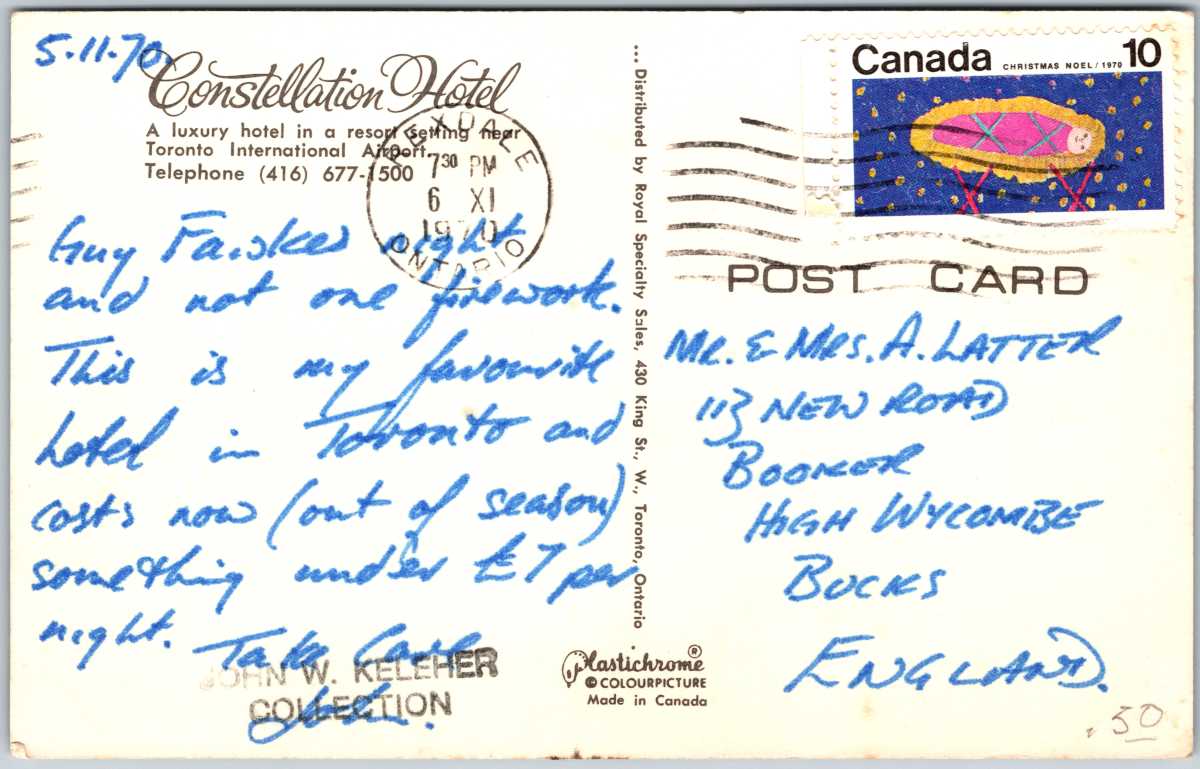 5.11.70.
Constellation Hotel
A luxury hotel in a resort setting near
Toronto International Airport
Telephone (416) 677-1500
REXDALE
7 30 PM
6 XI
1970
ONTARIO
Guy Fawkes night
and not one firework.
This is my favourite
hotel in Toronto and
costs now (out of season)
something under £7 per
night. Take Care
John.
JOHN W. KELEHER
COLLECTION
... Distributed by Royal Specialty Sales, 430 King St., W., Toronto, Ontario
Plastichrome ®
© COLOURPICTURE
Made in Canada
Canada 10
CHRISTMAS NOEL / 1970
POST CARD
MR. & MRS. A. LATTER
113 NEW ROAD
BOOKER
HIGH WYCOMBE
BUCKS
ENGLAND.
.50